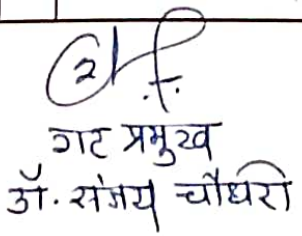 गट प्रमुख
डॉ. संजय चौधरी